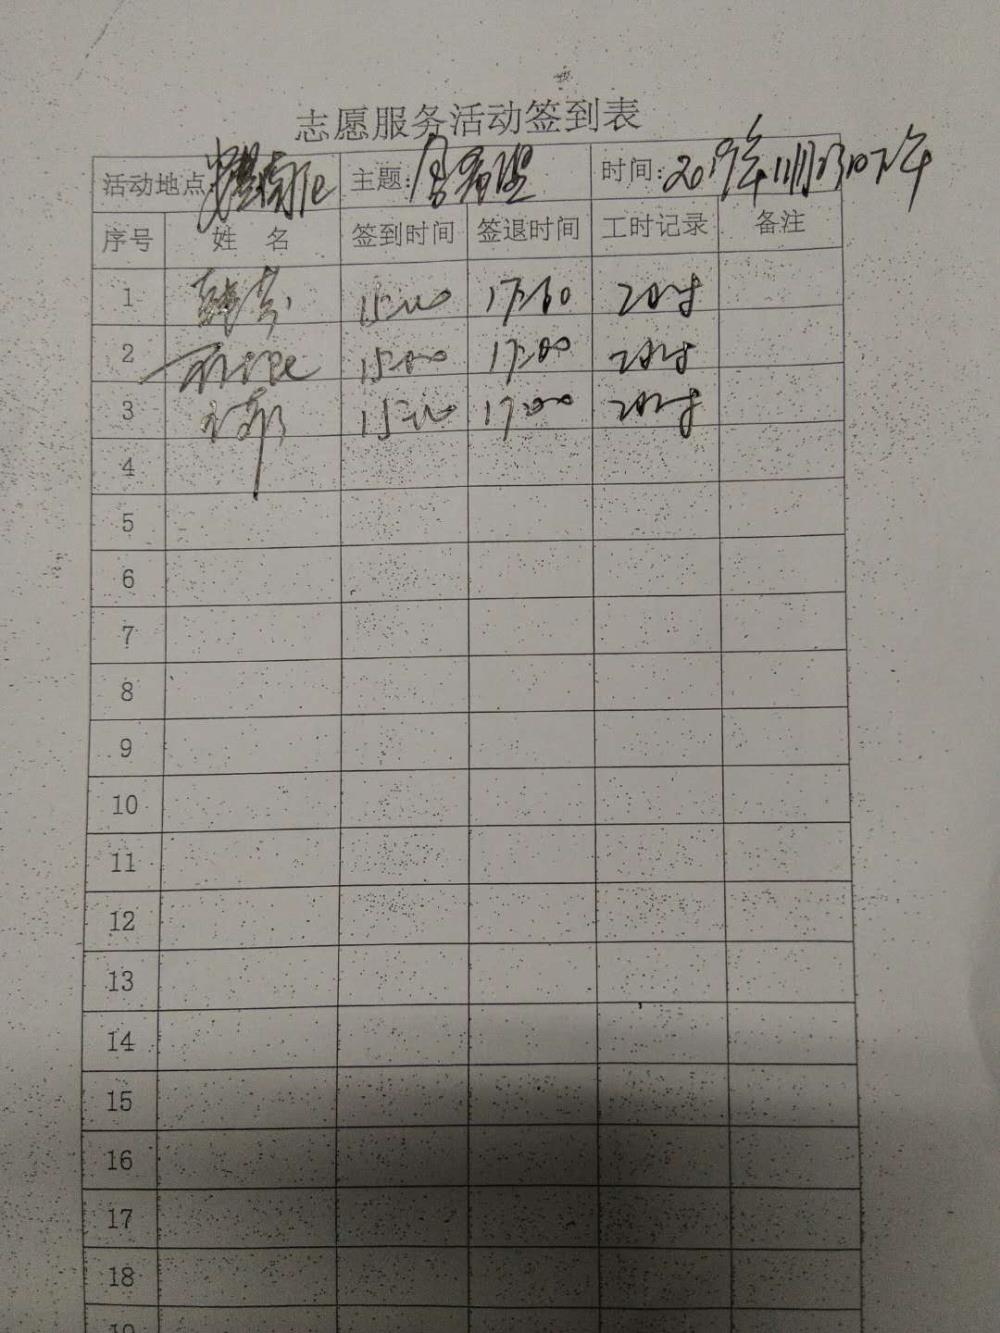 志愿服务活动签到表
活动地点: 主题: 时间:2019年11月30日下午
序号 姓 名 签到时间 签退时间 工时记录 备注
1 15:00 17:00 2小时
2 15:00 17:00 2小时
3 15:00 17:00 2小时
4
5
6
7
8
9
10
11
12
13
14
15
16
17
18
19